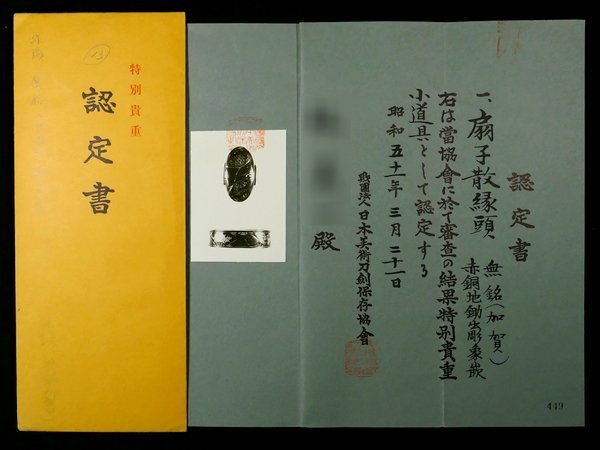 認定書
一、扇子散縁頭 無銘(加賀)
赤銅地鋤出彫象嵌
右は當協會に於て審査の結果特別貴重
小道具として認定する
昭和五十一年三月二十一日
財團法人日本美術刀剣保存協會
殿
449
特別貴重
認定書
13